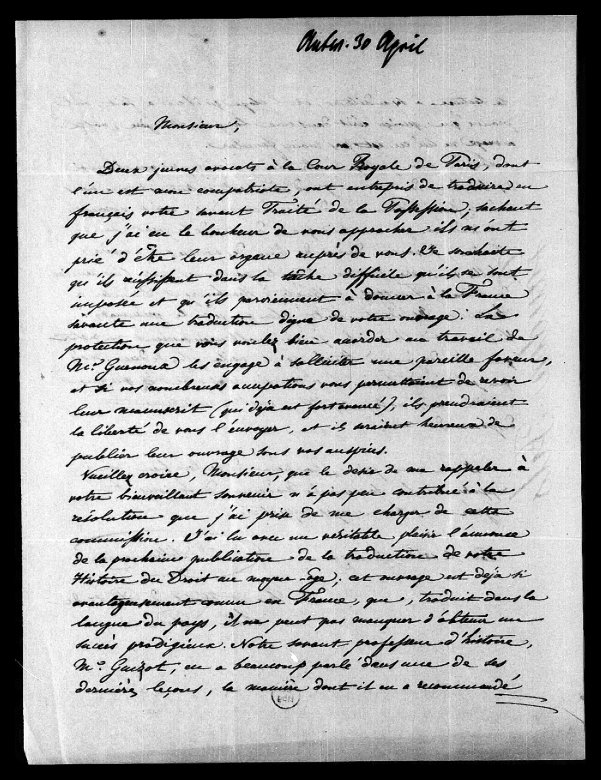 Antw. 30 April
Monsieur,
Deux jeunes avocats à la Cour Royale de Paris, dont
l'un est mon compatriote, ont entrepris de traduire en
français votre savant Traité de la Possession; sachant
que j'ai eu le bonheur de vous approcher ils m'ont
prié d'être leur organe auprès de vous. Je souhaite
qu'ils réussissent dans la tâche difficile qu'ils se sont
imposée et qu'ils parviennent à donner à la France
savante une traduction digne de votre ouvrage. La
protection que vous voulez bien accorder au travail de
Mr. Guenoux les engage à solliciter une pareille faveur,
et si vos nombreuses occupations vous permettaient de revoir
leur manuscrit (qui déjà est fort avancé), ils prendraient
la liberté de vous l'envoyer, et ils seraient heureux de
publier leur ouvrage sous vos auspices.
Veuillez croire, Monsieur, que le désir de me rappeler à
votre bienveillant souvenir n'a pas peu contribué à la
résolution que j'ai prise de me charger de cette
commission. J'ai lu avec un véritable plaisir l'annonce
de la prochaine publication de la traduction de votre
Histoire du Droit au moyen-âge; cet ouvrage est déjà si
avantageusement connu en France, que, traduit dans la
langue du pays, il ne peut pas manquer d'obtenir un
succès prodigieux. Notre savant professeur d'histoire,
Mr. Guizot, en a beaucoup parlé dans une de ses
dernières leçons, la manière dont il en a recommandé